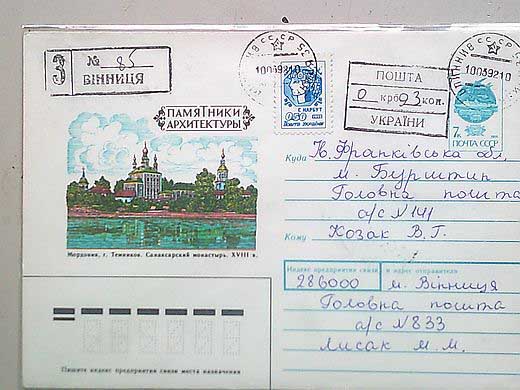 З № 85
ВІННИЦЯ
ВІННИЦЯ СССР
10039210
ПОШТА
0 крб 93 коп.
УКРАЇНИ
Г. НАРБУТ
0.50
ПОШТА УКРАЇНИ
7к
ПОЧТА СССР
ПАМЯТНИКИ
АРХИТЕКТУРЫ
Мордовия, г. Темников. Санаксарский монастырь. XVIII в.
Куда Ів. Франківська обл,
м. Бурштин
Головна пошта
а/с N 141
Кому Козак В. Г.
Индекс предприятия связи и адрес отправителя
286000 м. Вінниця
Головна пошта
а/с N 833
Лисак М. М.
Пишите индекс предприятия связи места назначения